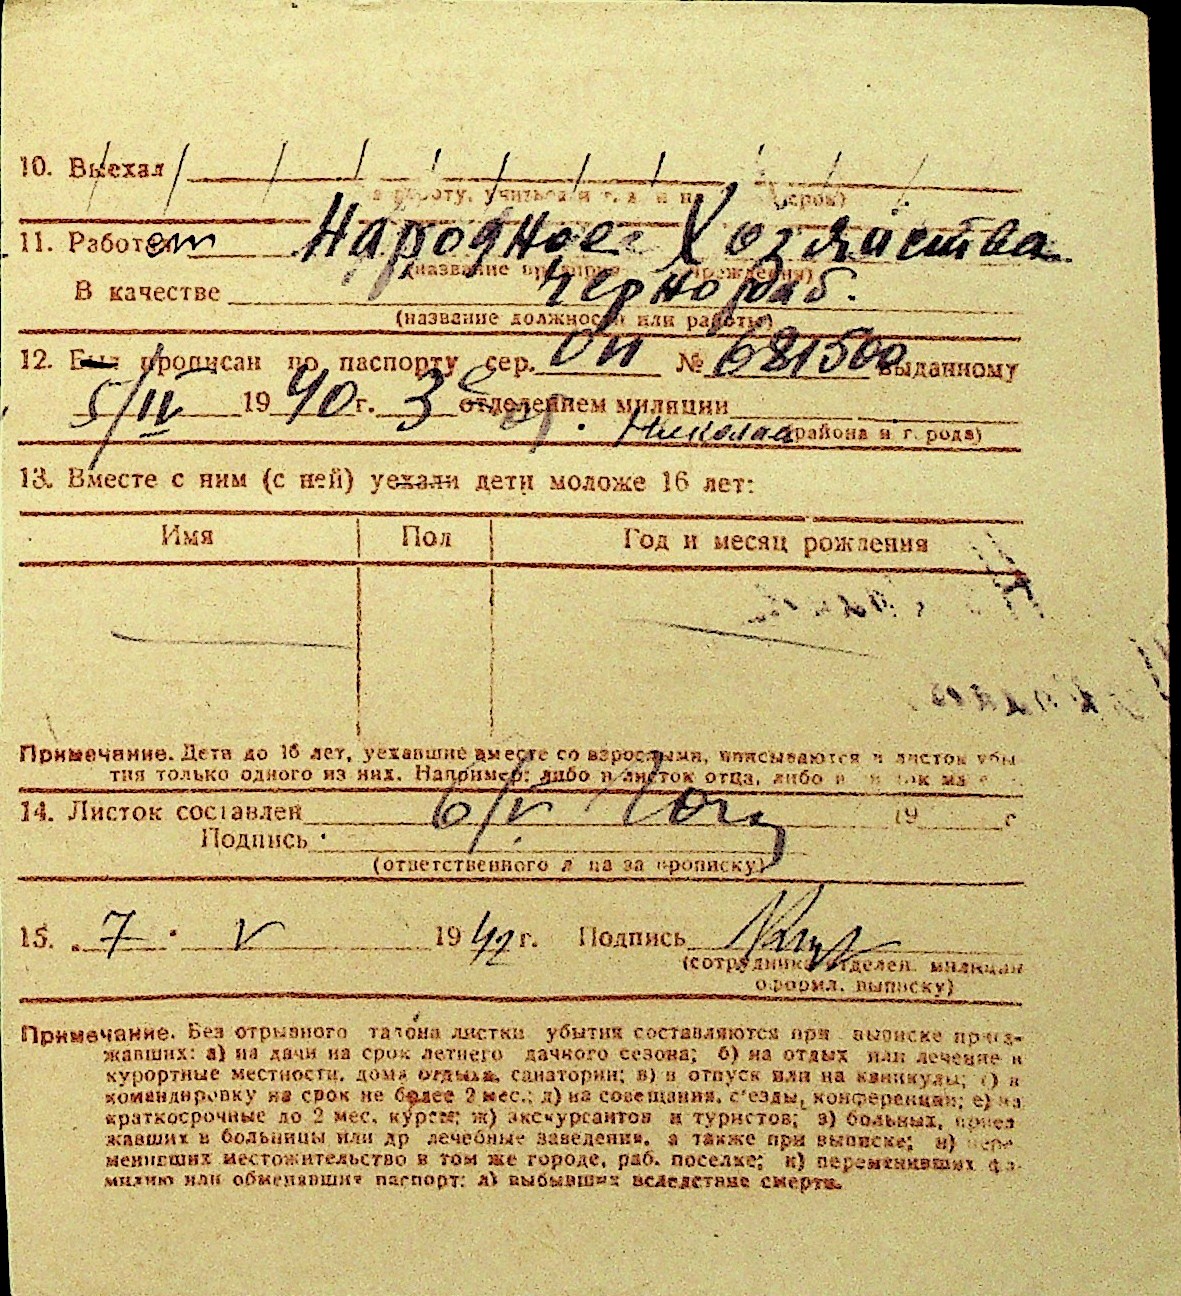 10. Выехал
на работу, учиться и т. д. и на (срок)
11. Работает Народное Хозяйства
(название предприя учреждения)
В качестве Чернораб.
(название должности или работы)
12. Был прописан по паспорту сер. № 681500 выданному
5/IV 1940 г. 3 отделением милиции
(района и города)
13. Вместе с ним (с ней) уехали дети моложе 16 лет:
Имя Пол Год и месяц рождения
Примечание. Дети до 16 лет, уехавшие вместе со взрослыми, вписываются в листок убы-
тия только одного из них. Например: либо в листок отца, либо в
14. Листок составлен 6/V 19 г
Подпись
(ответственного лица за прописку)
15. „7" V 1942 г. Подпись
(сотрудника отделен. милиции
оформл. выписку)
Примечание. Без отрывного талона листки убытия составляются при выписке приез-
жавших: а) на дачи на срок летнего дачного сезона; б) на отдых или лечение в
курортные местности, дома отдыха, санатории; в) в отпуск или на каникулы; г) в
командировку на срок не более 2 мес.; д) на совещания, с'езды, конференции; е) на
краткосрочные до 2 мес. курсы; ж) экскурсантов и туристов; з) больных, приез
жавших в больницы или др лечебные заведения, а также при выписке; и) пере-
менивших местожительство в том же городе, раб. поселке; к) переменивших фа-
милию или обменявших паспорт; л) выбывших вследствие смерти.